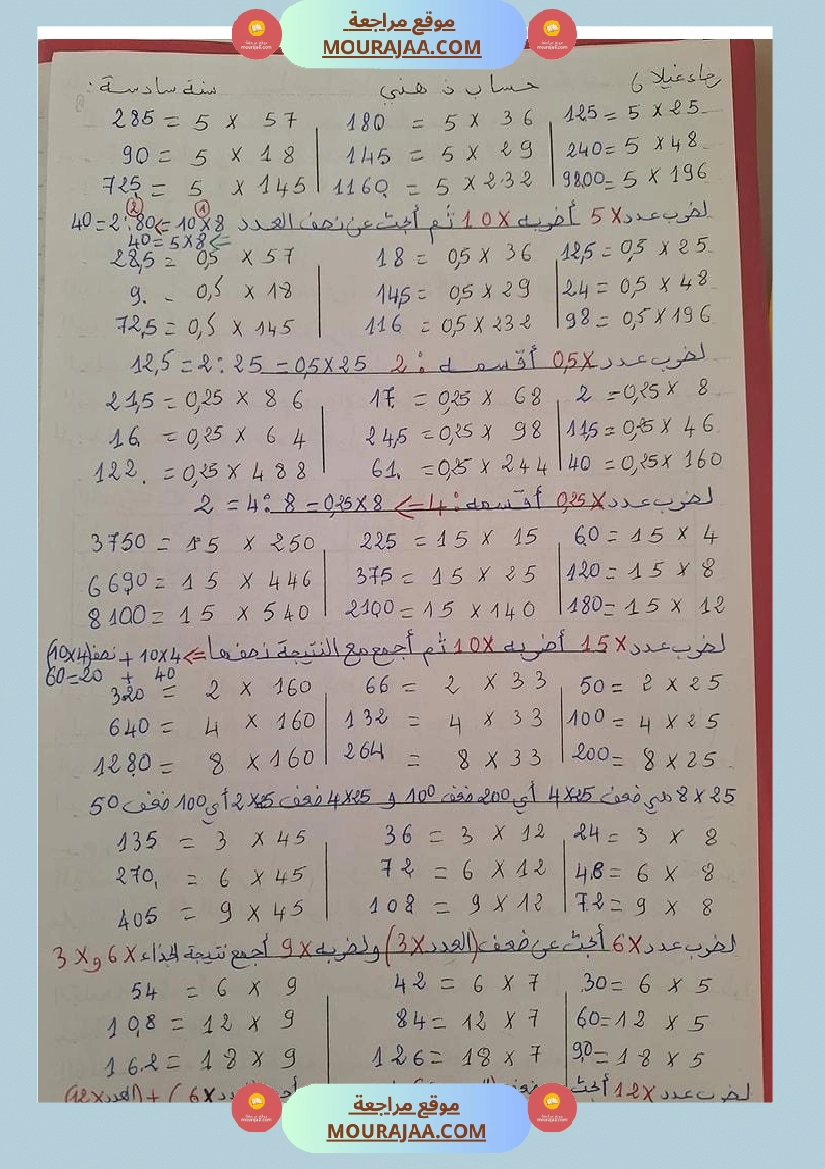 موقع مراجعة
MOURAJAA.COM
رجاء غيلا 6 حساب ذهني سنة سادسة:
125 = 5 x 25 180 = 5 x 36 285 = 5 x 57
240 = 5 x 48 145 = 5 x 29 90 = 5 x 18
9800 = 5 x 196 1160 = 5 x 232 725 = 5 x 145
لضرب عدد x 5 أضربه x 10 ثم أبحث عن نصف العدد 8 x 10 => 80 : 2 = 40
=> 8 x 5 = 40
12,5 = 0,5 x 25 18 = 0,5 x 36 28,5 = 0,5 x 57
24 = 0,5 x 48 14,5 = 0,5 x 29 9 = 0,5 x 18
98 = 0,5 x 196 116 = 0,5 x 232 72,5 = 0,5 x 145
لضرب عدد x 0,5 أقسمه : 2 25 x 0,5 = 25 : 2 = 12,5
2 = 0,25 x 8 17 = 0,25 x 68 21,5 = 0,25 x 86
11,5 = 0,25 x 46 24,5 = 0,25 x 98 16 = 0,25 x 64
40 = 0,25 x 160 61 = 0,25 x 244 122 = 0,25 x 488
لضرب عدد x 0,25 أقسمه : 4 => 8 x 0,25 = 8 : 4 = 2
60 = 15 x 4 225 = 15 x 15 3750 = 15 x 250
120 = 15 x 8 375 = 15 x 25 6690 = 15 x 446
180 = 15 x 12 2100 = 15 x 140 8100 = 15 x 540
لضرب عدد x 15 أضربه x 10 ثم أجمع مع النتيجة نصفها => 4 x 10 + نصف (4 x 10)
40 + 20 = 60
50 = 2 x 25 66 = 2 x 33 320 = 2 x 160
100 = 4 x 25 132 = 4 x 33 640 = 4 x 160
200 = 8 x 25 264 = 8 x 33 1280 = 8 x 160
25 x 8 هي ضعف 25 x 4 أي 200 ضعف 100 و 25 x 4 ضعف 25 x 2 أي 100 ضعف 50
24 = 3 x 8 36 = 3 x 12 135 = 3 x 45
48 = 6 x 8 72 = 6 x 12 270 = 6 x 45
72 = 9 x 8 108 = 9 x 12 405 = 9 x 45
لضرب عدد x 6 أبحث عن ضعف (العدد x 3) ولضربه x 9 أجمع نتيجة الجذاء x 6 و x 3
30 = 6 x 5 42 = 6 x 7 54 = 6 x 9
60 = 12 x 5 84 = 12 x 7 108 = 12 x 9
90 = 18 x 5 126 = 18 x 7 162 = 18 x 9
لضرب عدد x 12 أبحث
موقع مراجعة
MOURAJAA.COM